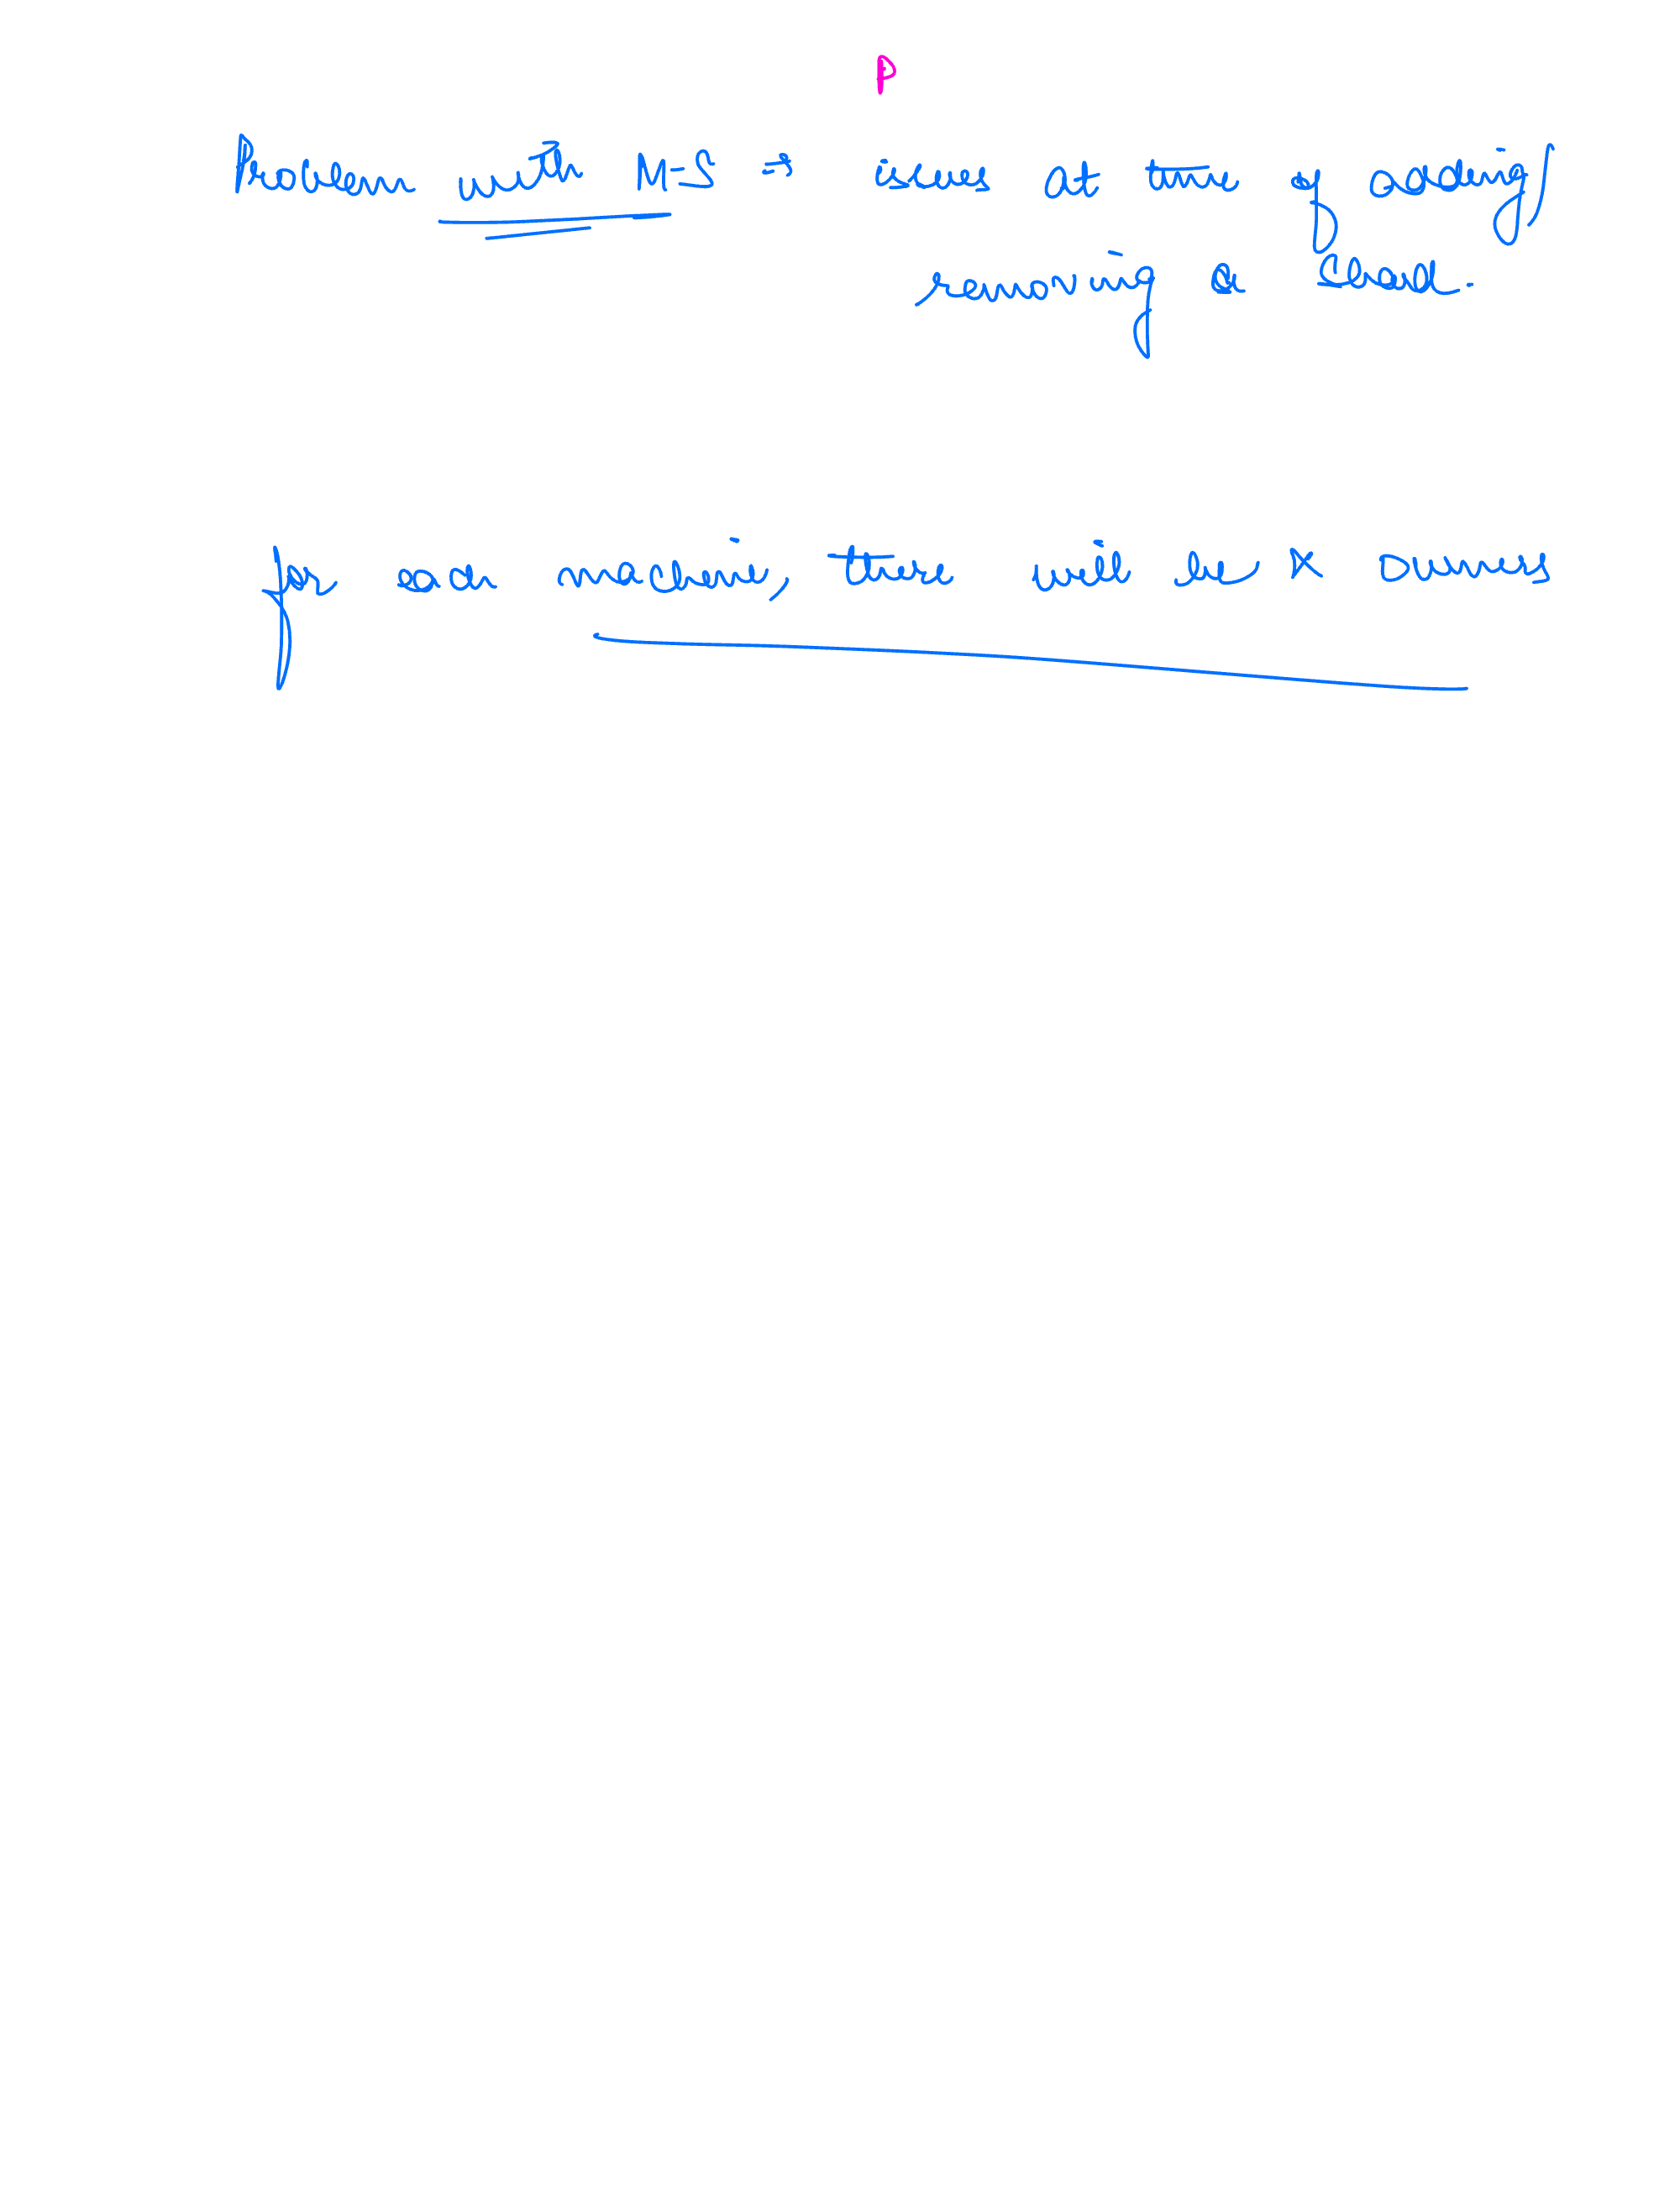 P
Problem with M-S → issues at time of adding/
removing a shard.
for each machine, there will be X